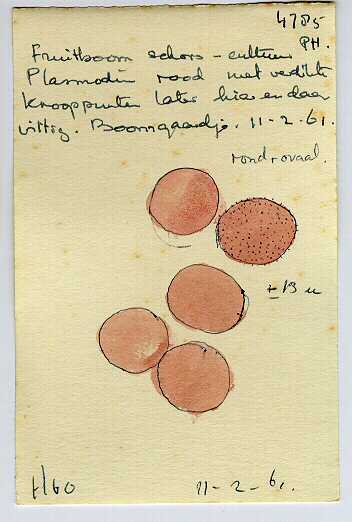 4785
PH.
Fruitboom schors - cultuur
Plasmodiu rood met verdikte
Knooppunten later hier en daar
vittig. Boomgaardje. 11-2-61.
rond ovaal.
± 13 u
H60
11-2-61.